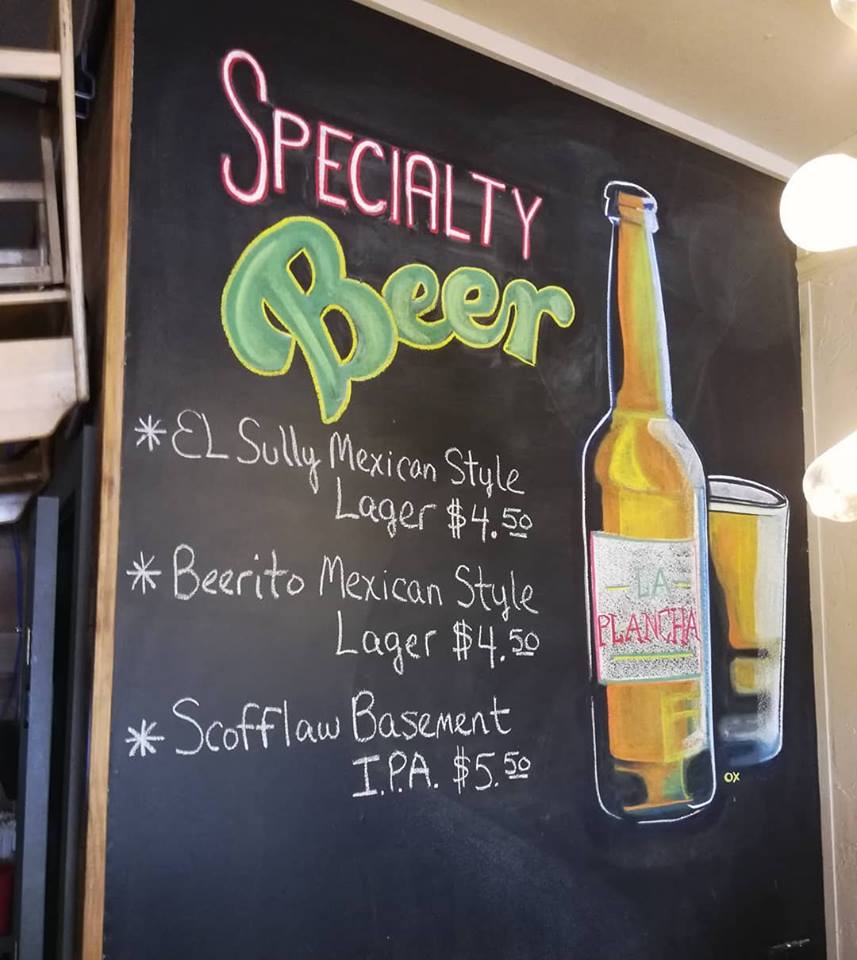 SPECIALTY
Beer
* EL Sully Mexican Style
Lager $4.50
* Beerito Mexican Style
Lager $4.50
* Scofflaw Basement
I.P.A. $5.50
- LA -
PLANCHA
OX